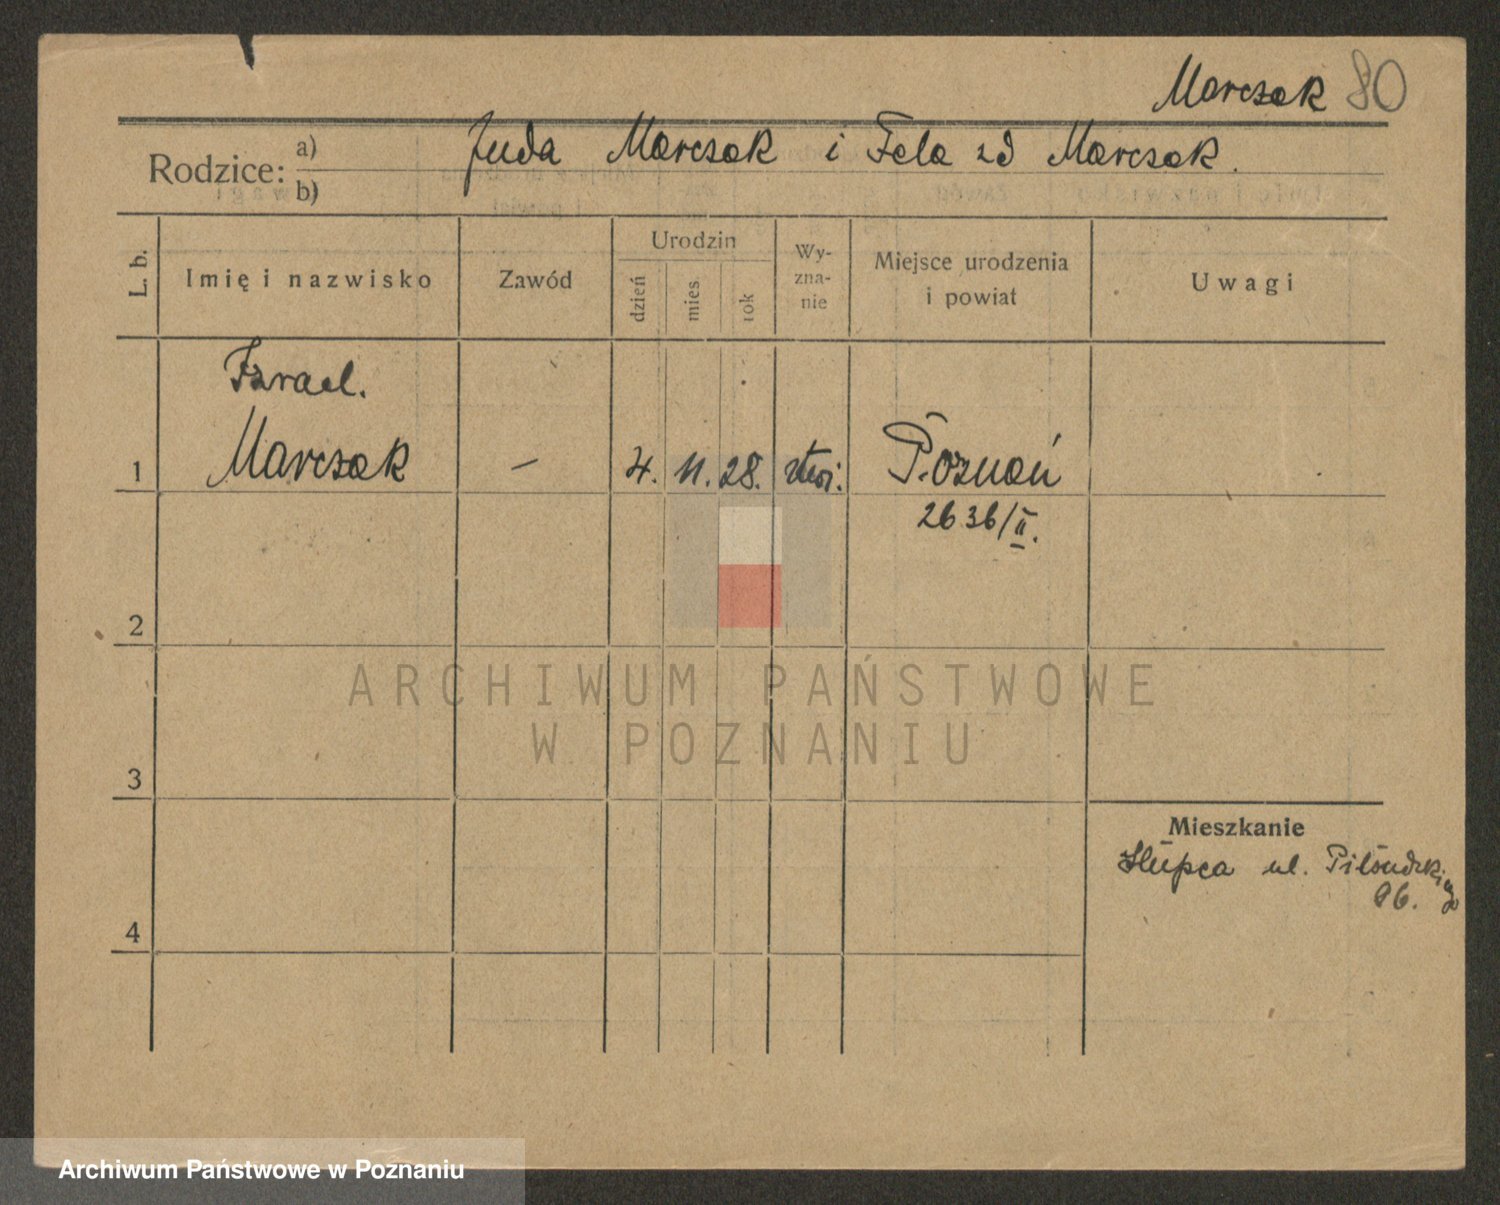 Marcsak 80
Rodzice: a) Juda Marcsak i Fela zd Marcsak.
b)
L. b.
Imię i nazwisko
Zawód
Urodzin
dzień
mies.
rok
Wy-
zna-
nie
Miejsce urodzenia
i powiat
Uwagi
Izrael.
1 Marcsak – 4. 11. 28. Poznań
2636/II.
2
3
4
Mieszkanie
Słupca ul. Piłsudskiego
ARCHIWUM PAŃSTWOWE
W POZNANIU
Archiwum Państwowe w Poznaniu